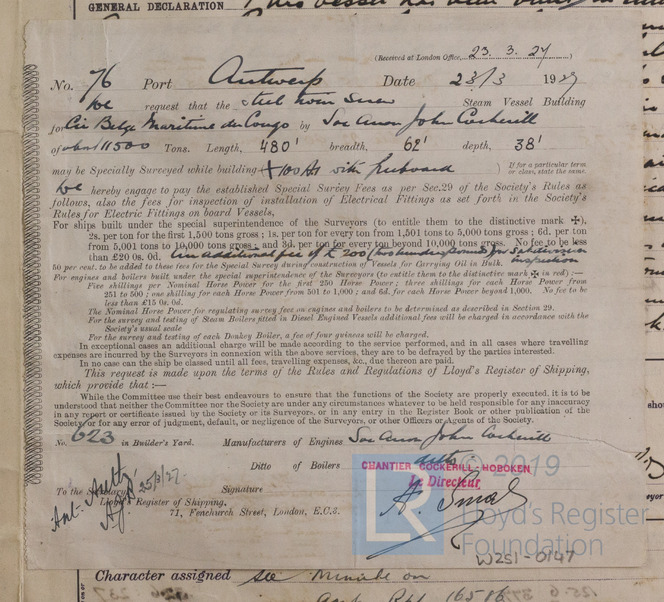 GENERAL DECLARATION This vessel has been built
(Received at London Office, 23.3.27)
No. 76 Port Antwerp Date 23/3 1927
We request that the steel twin screw Steam Vessel Building
for Cie Belge Maritime du Congo by Soc Anon John Cockerill
of about 11500 Tons. Length, 480' breadth, 62' depth, 38'
may be Specially Surveyed while building (+100A1 with freeboard ) If for a particular term or class, state the same.
We hereby engage to pay the established Special Survey Fees as per Sec.29 of the Society's Rules as
follows, also the fees for inspection of installation of Electrical Fittings as set forth in the Society's
Rules for Electric Fittings on board Vessels,
For ships built under the special superintendence of the Surveyors (to entitle them to the distinctive mark ✠).
2s. per ton for the first 1,500 tons gross; 1s. per ton for every ton from 1,501 to 5,000 tons gross; 6d. per ton
from 5,001 tons to 10,000 tons gross; and 3d. per ton for every ton beyond 10,000 tons gross. No fee to be less
than £20 0s. 0d. An additional fee of £200 (two hundred pounds) for Subdivision inspection
50 per cent. to be added to these fees for the Special Survey during construction of Vessels for Carrying Oil in Bulk.
For engines and boilers built under the special superintendence of the Surveyors (to entitle them to the distinctive mark ✠ in red) :—
Five shillings per Nominal Horse Power for the first 250 Horse Power; three shillings for each Horse Power from
251 to 500; one shilling for each Horse Power from 501 to 1,000; and 6d. for each Horse Power beyond 1,000. No fee to be
less than £15 0s. 0d.
The Nominal Horse Power for regulating survey fees on engines and boilers to be determined as described in Section 29.
For the survey and testing of Steam Boilers fitted in Diesel Engined Vessels additional fees will be charged in accordance with the
Society's usual scale
For the survey and testing of each Donkey Boiler, a fee of four guineas will be charged.
In exceptional cases an additional charge will be made according to the service performed, and in all cases where travelling
expenses are incurred by the Surveyors in connexion with the above services, they are to be defrayed by the parties interested.
In no case can the ship be classed until all fees, travelling expenses, &c., due thereon are paid.
This request is made upon the terms of the Rules and Regulations of Lloyd's Register of Shipping,
which provide that :—
While the Committee use their best endeavours to ensure that the functions of the Society are properly executed, it is to be
understood that neither the Committee nor the Society are under any circumstances whatever to be held responsible for any inaccuracy
in any report or certificate issued by the Society or its Surveyors, or in any entry in the Register Book or other publication of the
Society, or for any error of judgment, default, or negligence of the Surveyors, or other Officers or Agents of the Society.
No. 623 in Builder's Yard. Manufacturers of Engines Soc Anon John Cockerill
Ditto of Boilers ditto
© 2019
CHANTIER COCKERILL-HOBOKEN
Le Directeur
25/3/27
To the Secretary, Signature
Lloyd's Register of Shipping,
71, Fenchurch Street, London, E.C.3.
LR Lloyd's Register
Foundation
W251-0147
Character assigned see Minute on
Rpt 16516